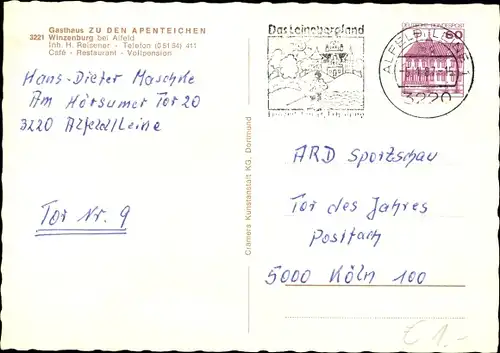 Gasthaus ZU DEN APENTEICHEN
3221 Winzenburg bei Alfeld
Inh. H. Reisener - Telefon (05184) 411
Café - Restaurant - Vollpension
Hans-Dieter Maschke
Am Hörsumer Tor 20
3220 Alfeld/Leine
Tor Nr. 9
Cramers Kunstanstalt KG, Dortmund
Das Leinebergland
DEUTSCHE BUNDESPOST
60
ALFELD (LEINE) 1
3220
ARD Sportschau
Tor des Jahres
Postfach
5000 Köln 100
€ 1.-